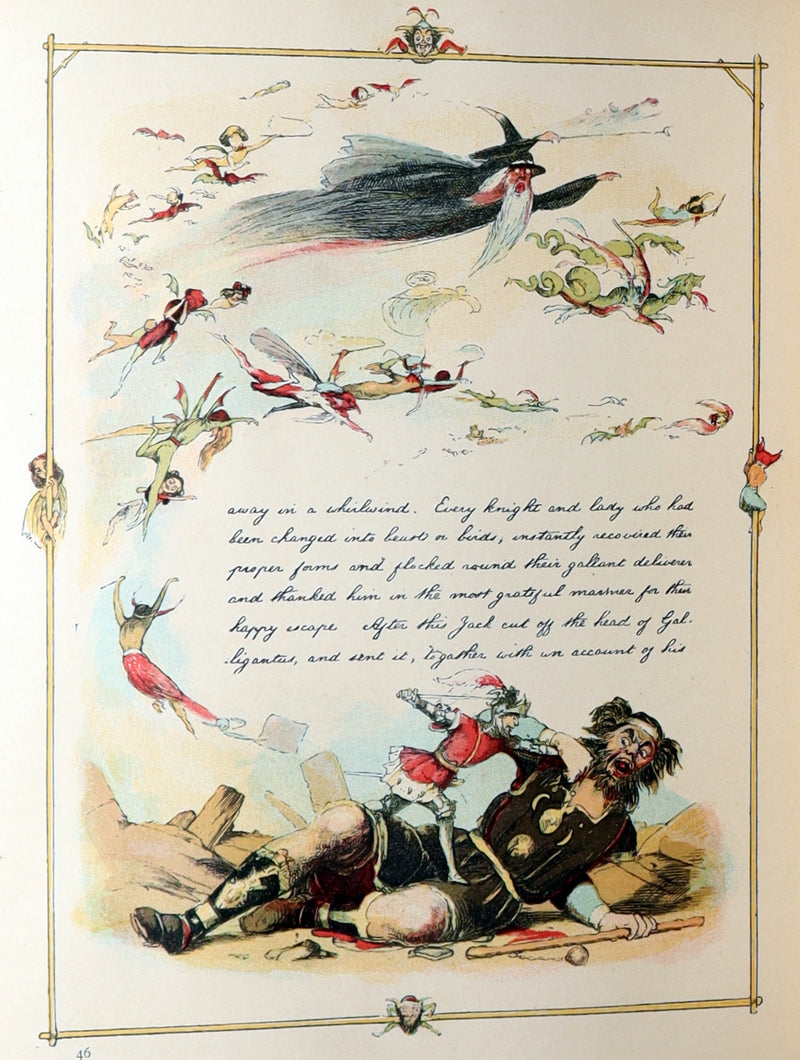 away in a whirlwind. Every knight and lady who had
been changed into beast or birds, instantly recovered their
proper forms and flocked round their gallant deliverer
and thanked him in the most grateful manner for their
happy escape After this Jack cut off the head of Gal-
-ligantus, and sent it, together with an account of his
46